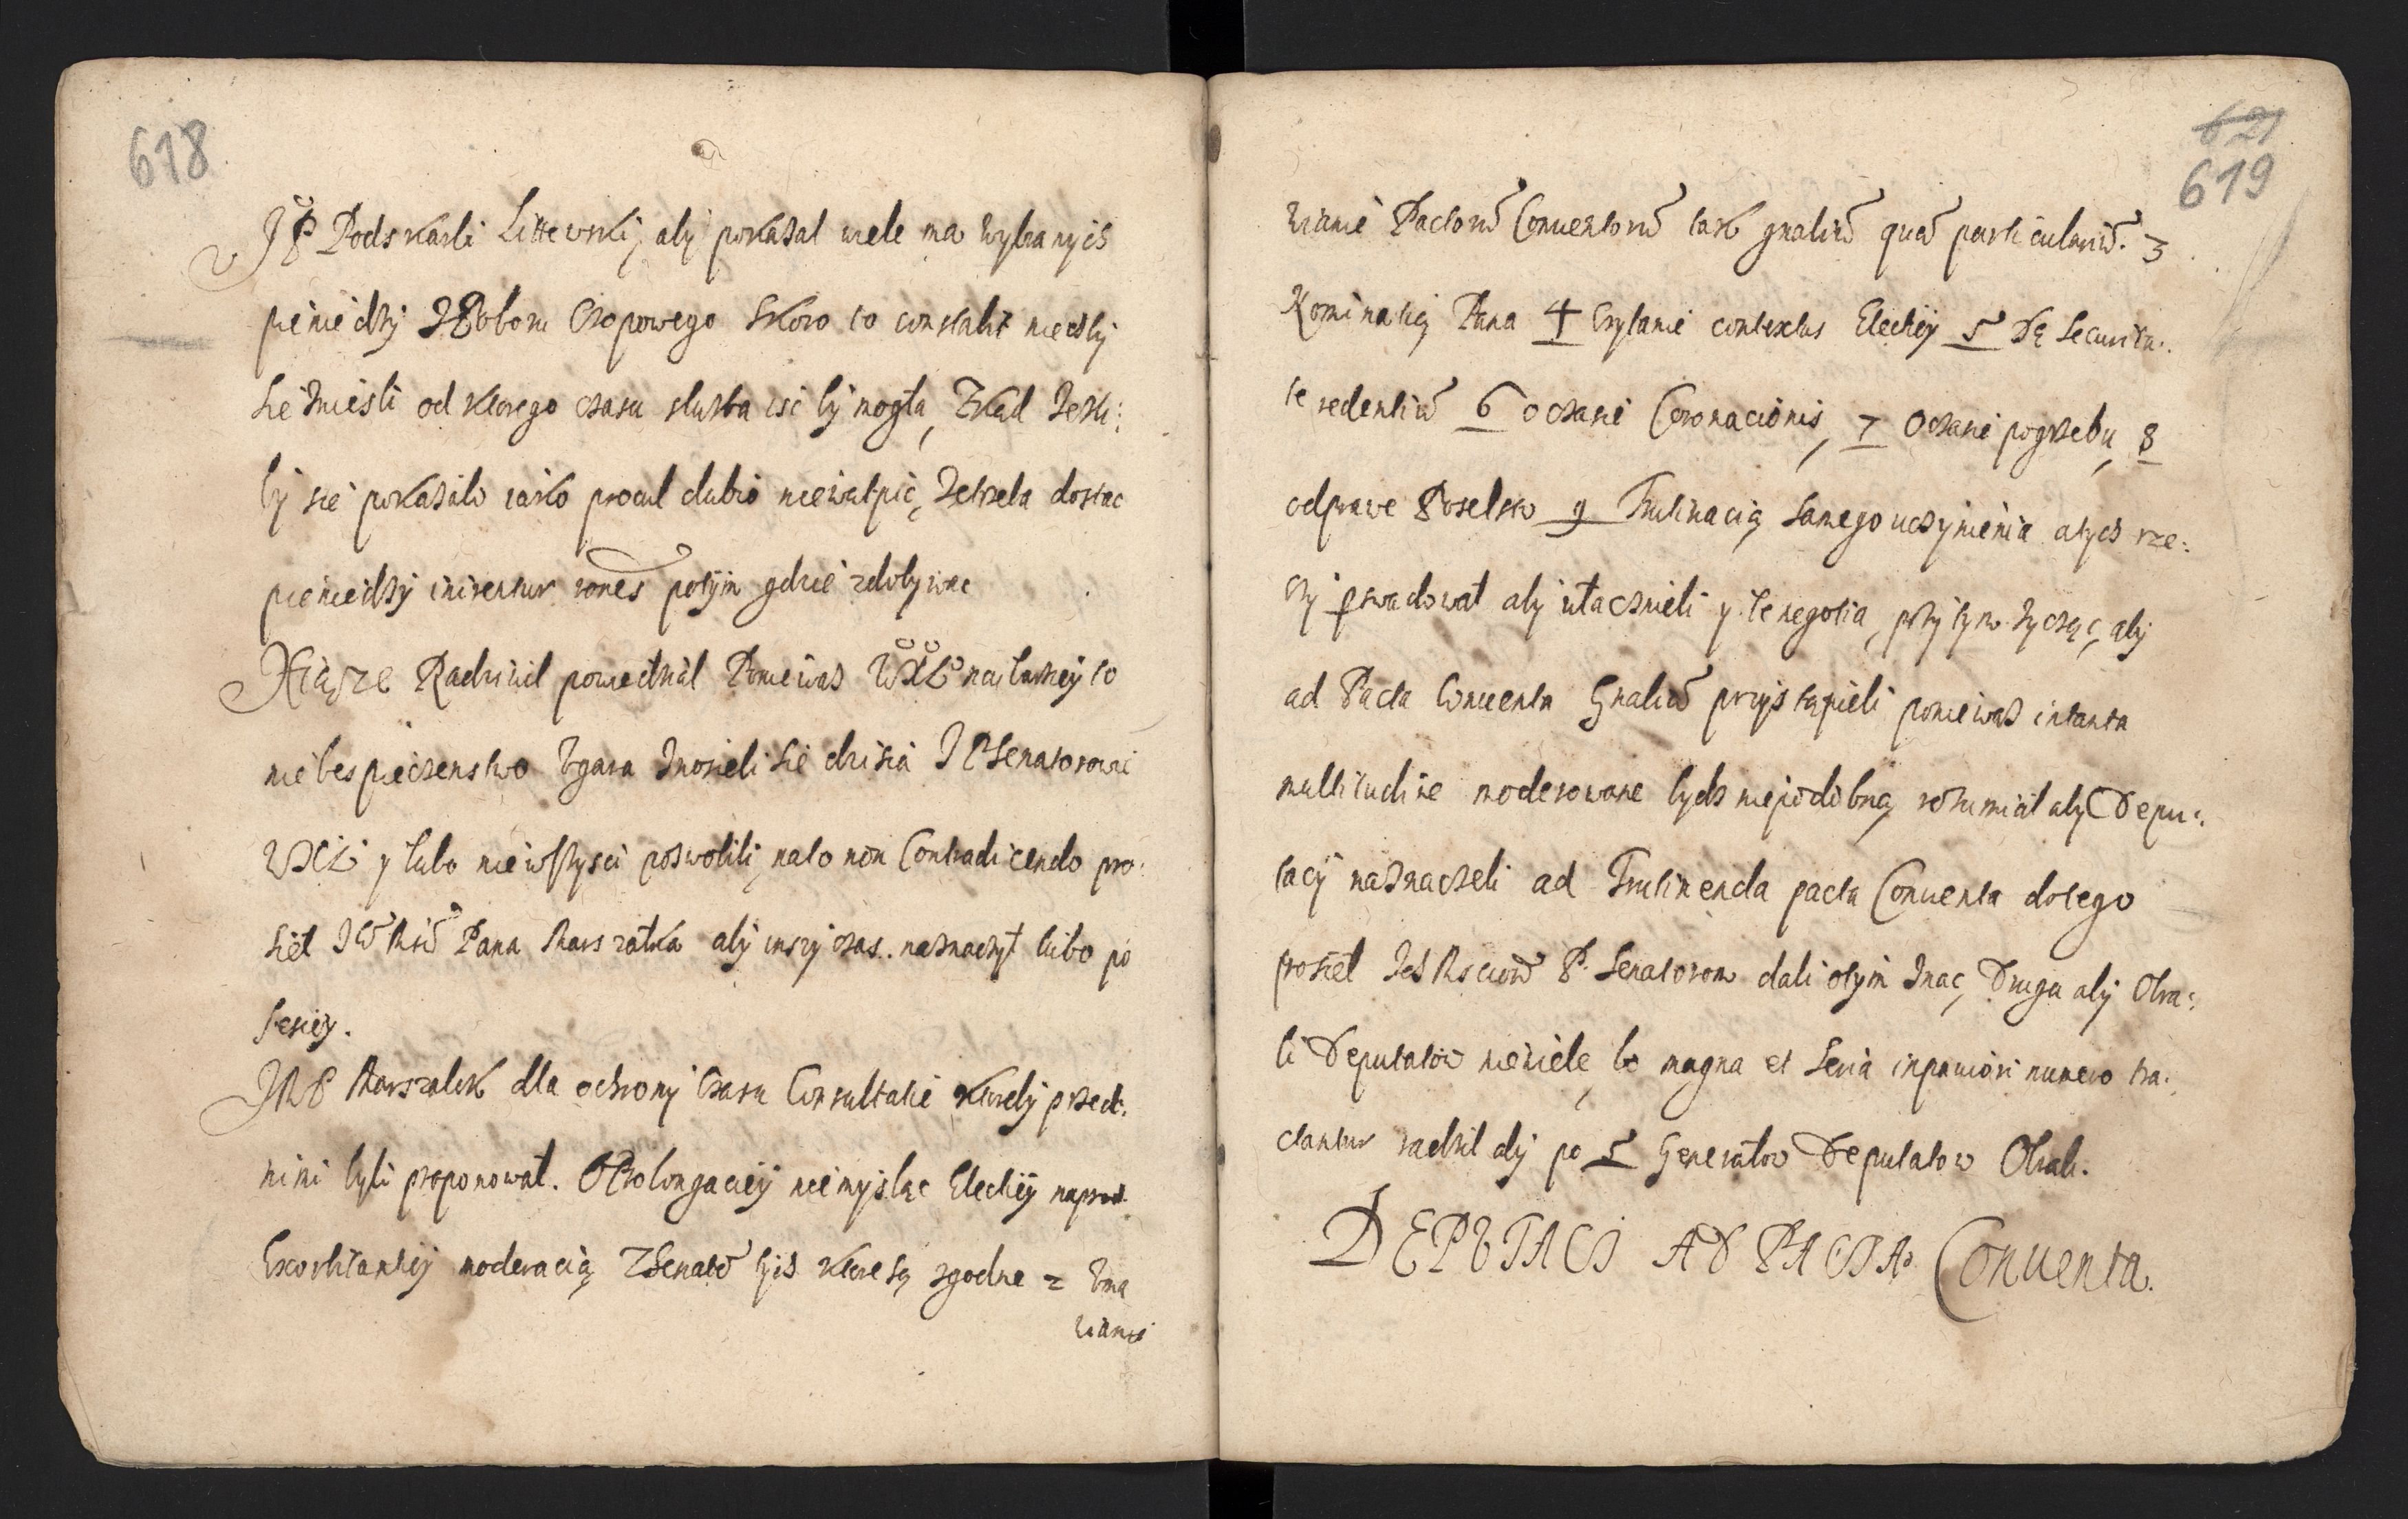 618
JP Podskarbi Littewski, aby pokazał wiele ma wybranych
pieniedzy z Poboru Czopowego skoro to constabit niechby
sie znieśli od ktorego czasu służba iść by mogła, zkąd Jesli:
by sie pokazało iako procul dubio niewatpię, zetrzeba dostac
pieniedzy inirentur rones potym gdzie zdobywac
Xiąże Radziwil powiedział Poniewaz WXL naybarziey to
niebespieczenstwo Vgara znosieli sie dzisia JPSenatorowie
WXL y lubo niewszysci pozwolili, nato non Contradicendo pro:
sieł Pana Marszałka aby inszy czas naznaczył lubo po
sesiey.
JMP Marszałek dla ochrony czasu Consultatie ktoreby przed:
nimi byli proponował. O Prolongaciey niemysląc Elechiey naprod
Exorbitantiy moderacią z Senatu tych ktore są zgodne 2 Vma
wianie
621
619
wianie Pactorum Conventorum tak gnalium quam particularium. 3
Nominatią Pana 4 Czytanie contextus Elechiey 5 De Securita:
te redeuntium 6 o czasie Coronacionis, 7 Oczasie pogrzebu, 8
odprawe Poselstw 9 Trutinacią samego uczynienia atych rze:
czy perswadował aby utacznieli y te negotia, przytym zycząc, aby
ad Pacta Conventa Gnalium przystąpieli poniewaz intanta
multitudine moderowane bydz niepodobna, rozumiał aby Depu:
tacy naznaczeli ad Trutinenda pacta Conventa dotego
prosieł Ich Msciow P. Senatorow dali otym znac, Druga aby Obra:
li Deputatow niewiele, bo magna et seria inpauciori numero tra:
ctantur radził aby po 5 Generałow Deputatow Obrali.
DEPVTACI AD PACTA Conventa.